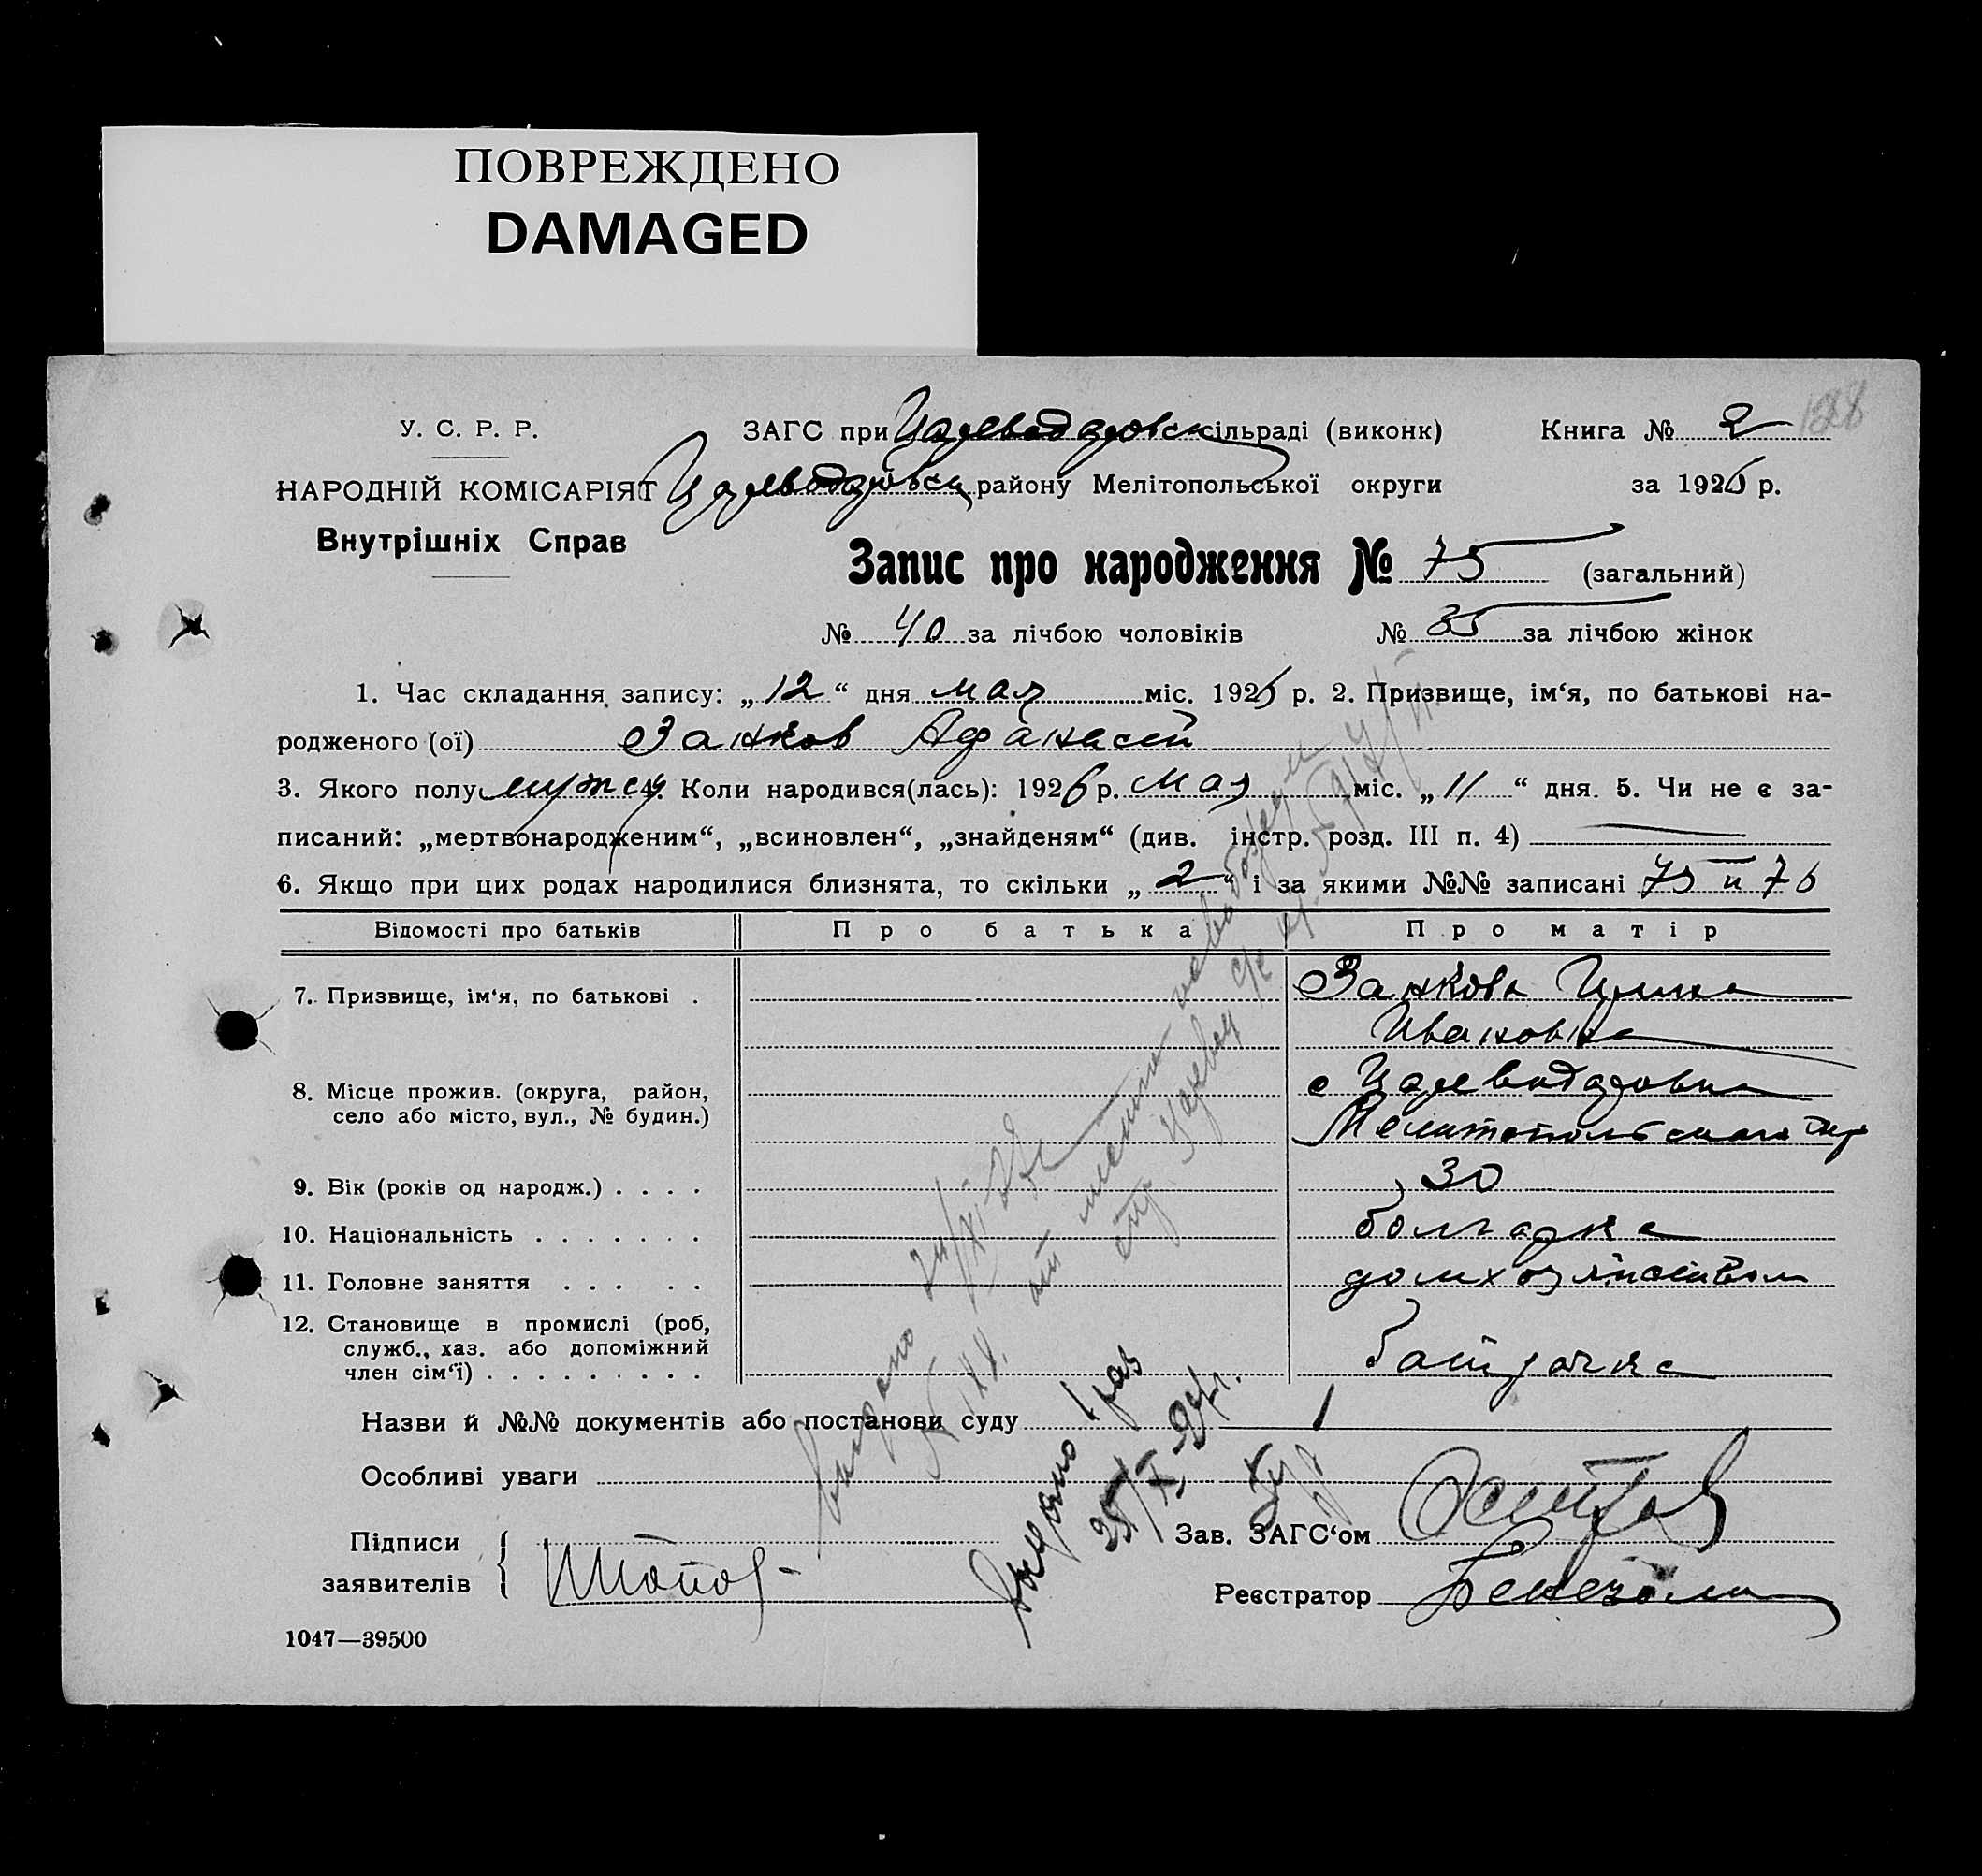 ПОВРЕЖДЕНО
DAMAGED
У. С. Р. Р.
ЗАГС при Цареводаровск сільраді (виконк)
Книга № 2
128
НАРОДНІЙ КОМІСАРІЯТ
Цареводаровск району Мелітопольської округи
за 1926 р.
Внутрішніх Справ
Запис про народження № 75 (загальний)
№ 40 за лічбою чоловіків № 35 за лічбою жінок
1. Час складання запису: „12“ дня мая міс. 1926 р. 2. Призвище, ім‘я, по батькові на-
родженого (ої) Занков Афанасий
3. Якого полу мужск 4. Коли народився(лась): 1926 р. мая міс. „11“ дня. 5. Чи не є за-
писаний: „мертвонародженим“, „всиновлен“, „знайденям“ (див. інстр. розд. III п. 4)
6. Якщо при цих родах народилися близнята, то скільки „2“ і за якими №№ записані 75 и 76
Відомості про батьків Про батька Про матір
7. Призвище, ім‘я, по батькові . Занкова
Ивановна
8. Місце прожив. (округа, район, с Цареводаровка
село або місто, вул., № будин.) Мелитопольского окр
9. Вік (років од народж.) . . . . 30
10. Національність . . . . . . . болгарка
11. Головне заняття . . . . . домхозяйством
12. Становище в промислі (роб,
служб., хаз. або допоміжний
член сім‘ї) . . . . . . . . . батрачка
Назви й №№ документів або постанови суду
Особливі уваги
Выдано 1 раз
25/X-
Підписи
заявителів
Зав. ЗАГС‘ом
Реєстратор
1047—39500